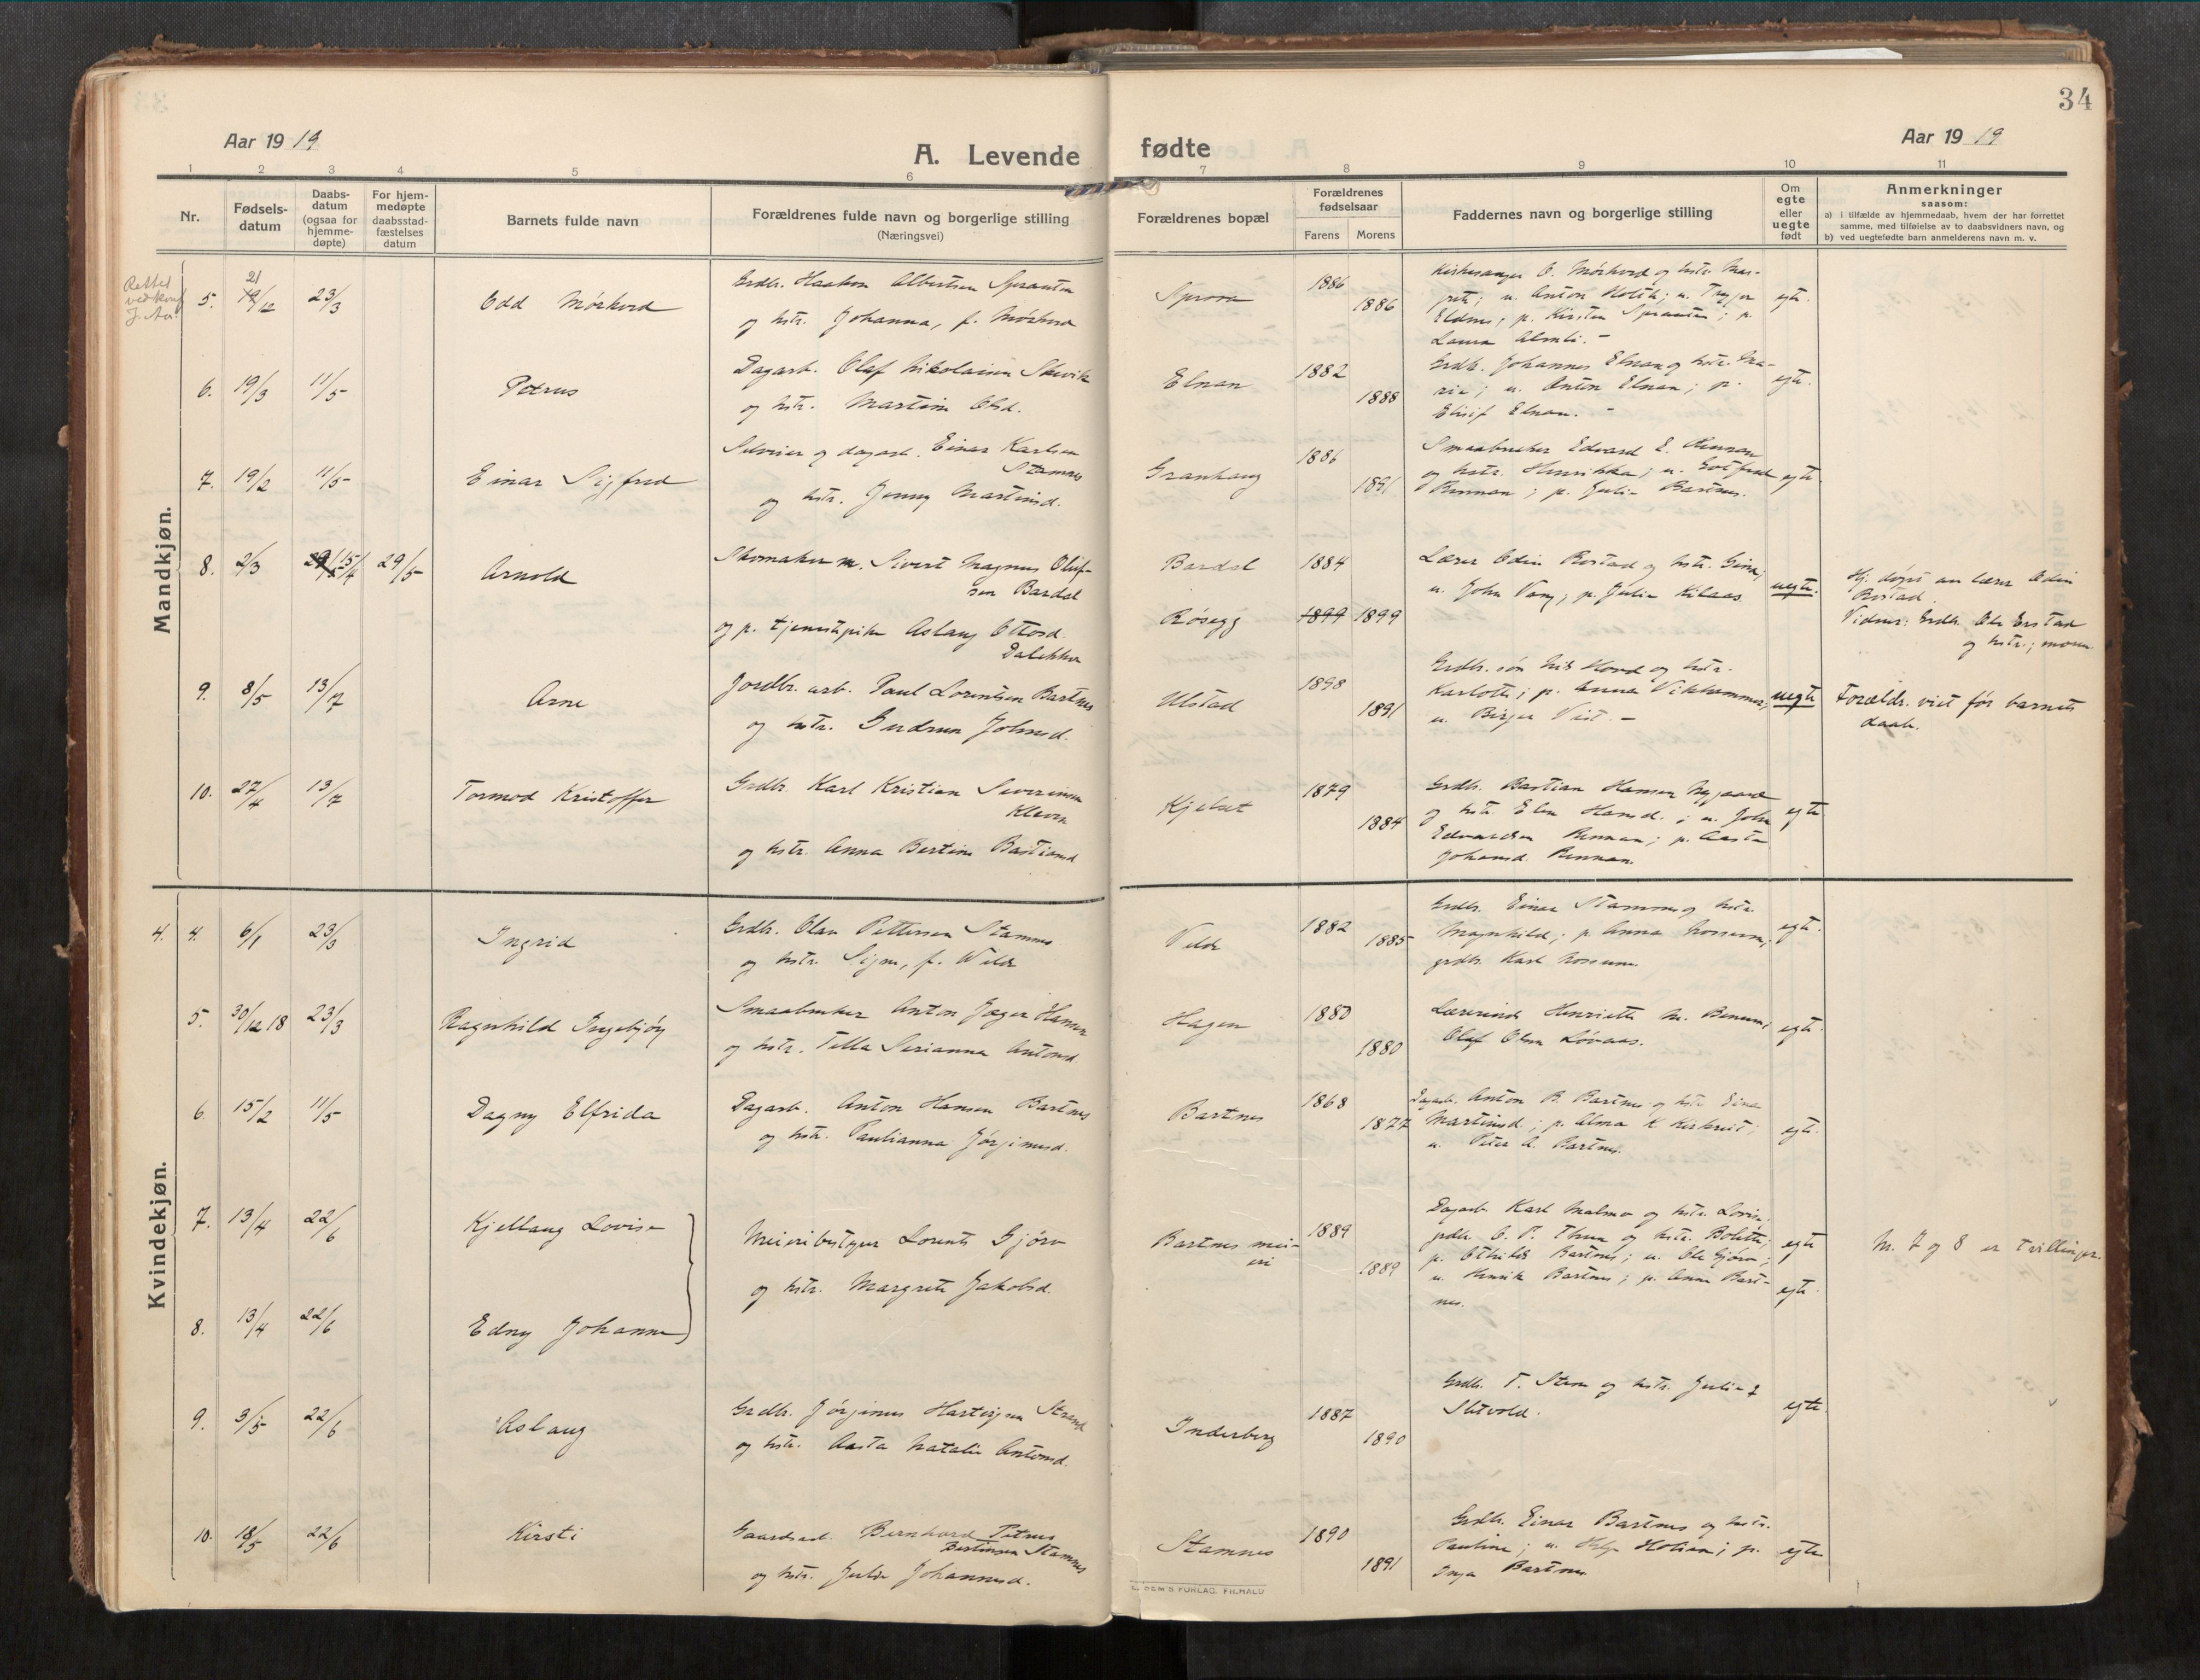 34
Aar 1919
A. Levende
fødte
Aar 1919
1 2 3 4 5 6 7 8 9 10 11
Nr.
Fødsels-
datum
Daabs-
datum
(ogsaa for
hjemme-
døpte)
For hjem-
medøpte
daabsstad-
fæstelses
datum
Barnets fulde navn
Forældrenes fulde navn og borgerlige stilling
(Næringsvei)
Forældrenes bopæl
Forældrenes
fødselsaar
Farens Morens
Faddernes navn og borgerlige stilling
Om
egte
eller
uegte
født
Anmerkninger
saasom:
a) i tilfælde av hjemmedaab, hvem der har forrettet
samme, med tilføielse av to daabsvidners navn, og
b) ved uegtefødte barn anmelderens navn m. v.
Mandkjøn.
Rettet
5. 21 19/12 23/3 Odd Mørkved
Grdbr. Haakon Albertsen
og hstr. Johanna, f. Mørkved
Sprova 1886 1886
Kirkesanger O. Mørkved og hstr. Mar-
grete; u. Anton Holth; u. Trygve
Eldnes; p. Kirsten; p.
Laura Almli. -
egte.
6. 19/3 11/5 Petrus
Dagarb. Olaf Nikolaisen
og hstr. Martine Olsd.
Elnan 1882 1888
Grdbr. Johannes Elnan og hstr. Ma-
rie; u. Anton Elnan; p.
Elisif Elnan. -
egte.
7. 19/2 11/5 Einar Sigfred
og dagarb. Einar Karlsen
Stamnes
og hstr. Jenny Martinsd.
Granhaug 1886 1891
Smaabruker Edvard E. Rennan
og hstr. Henrikka; u. Gotfred
Rennan; p. Julie Bartnes.
egte.
8. 2/3 15/4 29/5 Arnold
Skomaker m. Sivert Magnus Oluf-
sen Bardal
og p. tjenestepike Aslaug Ottosd.
Dalekken
Bardal 1884
Røsegg 1899 1899
Lærer Odin Rostad og hstr. Gina;
u. John Vang; p. Julie Kilaas.
uegte.
Hj. døpt av lærer Odin
Rostad
Vidner: Grdbr. Ole
og hstr.; moren
9. 8/5 13/7 Arne
Jordbr. arb. Paul Lorentsen Bartnes
og hstr. Gudrun Johnsd.
Ulstad 1898 1891
Grdbr. søn Nils og hstr.
Karlotte; p. Anna Vikhammer;
u. Birger Vist. -
uegte
Forældr. viet før barnets
daab.
10. 27/4 13/7 Tormod Kristoffer
Grdbr. Karl Kristian Severinsen
Kleven
og hstr. Anna Bertine Bastiansd
Kjelset 1879 1884
Grdbr. Bastian Hansen Nygaard
og hstr Elen Hansd.; u. John
Edvardsen Rennan; p. Aasta
Johansd. Rennan.
egte
Kvindekjøn.
4. 4. 6/1 23/3 Ingrid
Grdbr. Olav Pettersen Stamnes
og hstr. Signe, f. Velde
Velde 1882 1885
Grdbr. Einar Stamnes og hstr.
Magnhild; p. Anna Rossum;
grdbr. Karl Rossum.
egte.
5. 30/12 18 23/3 Ragnhild Ingebjørg
Smaabruker Anton Jæger Hansen
og hstr. Tella Serianna Antonsd
Hagen 1880 1880
Lærerinde Henriette M. Benum;
Olaf Olsen Løvaas.
egte.
6. 15/2 11/5 Dagny Elfrida
Dagarb. Anton Hansen Bartnes
og hstr. Paulianna Jørginusd.
Bartnes 1868 1877
Dagarb. Anton B. Bartnes og hstr.
Martinsd.; p. Alma K.
u. Peter A. Bartnes.
egte.
7. 13/4 22/6 Kjellaug Lovise
Meieribestyrer Lorents Gjørv
og hstr. Margrete Jakobsd.
Bartnes mei-
eri 1889 1889
Dagarb Karl Malmo og hstr. Lovise;
grdbr. O. P. Thun og hstr. Bolette;
p. Othilde Bartnes; u. Ole Gjørv;
u. Henrik Bartnes; p. Anna Bart-
nes.
egte
egte.
Nr. 7 og 8 er tvillinger.
8. 13/4 22/6 Edny Johanne
9. 3/5 22/6 Aslaug
Grdbr. Jørginus Hartvigsen Strand
og hstr. Aasta Natalie Antonsd.
Inderberg 1887 1890
Grdbr. T. Strm og hstr. Julie f
Slotvold.
egte.
10. 18/5 22/6 Kirsti
Gaardsarb. Bernhard Petrus
Bertinsen Stamnes
og hstr. Julie Johannesd.
Stamnes 1890 1891
Grdbr. Einar Bartnes og hstr.
Pauline; u. Helge Holien; p.
Inga Bartnes
egte
SEM'S FORLAG, FILHALD